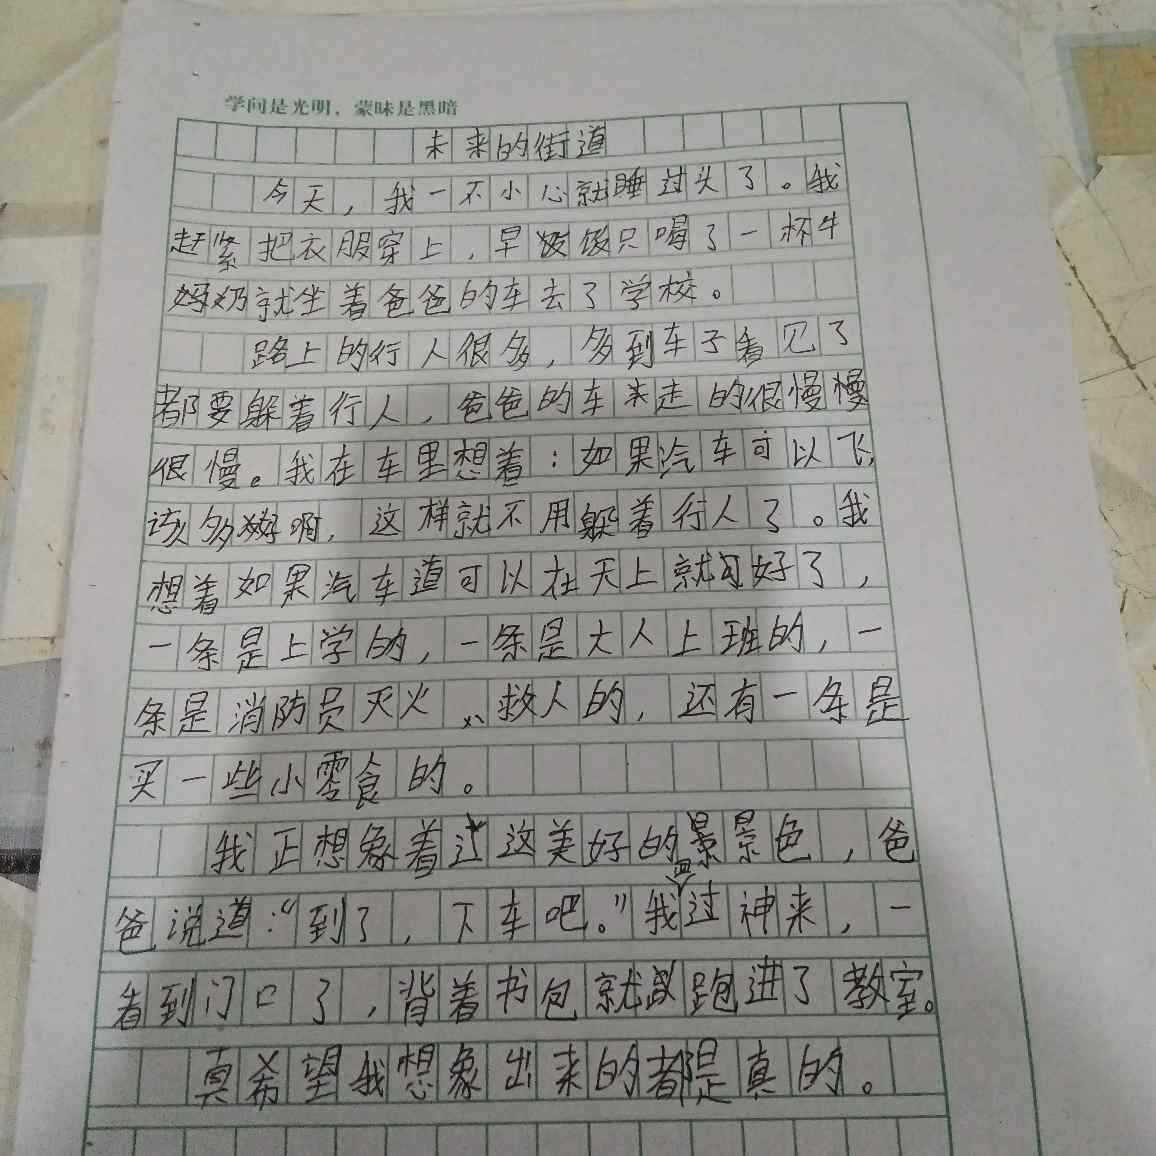 学问是光明，蒙昧是黑暗
未来的街道
今天，我一不小心就睡过头了。我
赶紧把衣服穿上，早饭只喝了一杯牛
奶就坐着爸爸的车去了学校。
路上的行人很多，多到车子看见了
都要躲着行人，爸爸的车走的很慢慢
很慢。我在车里想着：如果汽车可以飞，
该多好啊，这样就不用躲着行人了。我
想着如果汽车道可以在天上就好了，
一条是上学的，一条是大人上班的，一
条是消防员灭火、救人的，还有一条是
买一些小零食的。
我正想象着这美好的景色，爸
爸说道：“到了，下车吧。”我回过神来，一
看到门口了，背着书包就跑进了教室。
真希望我想象出来的都是真的。